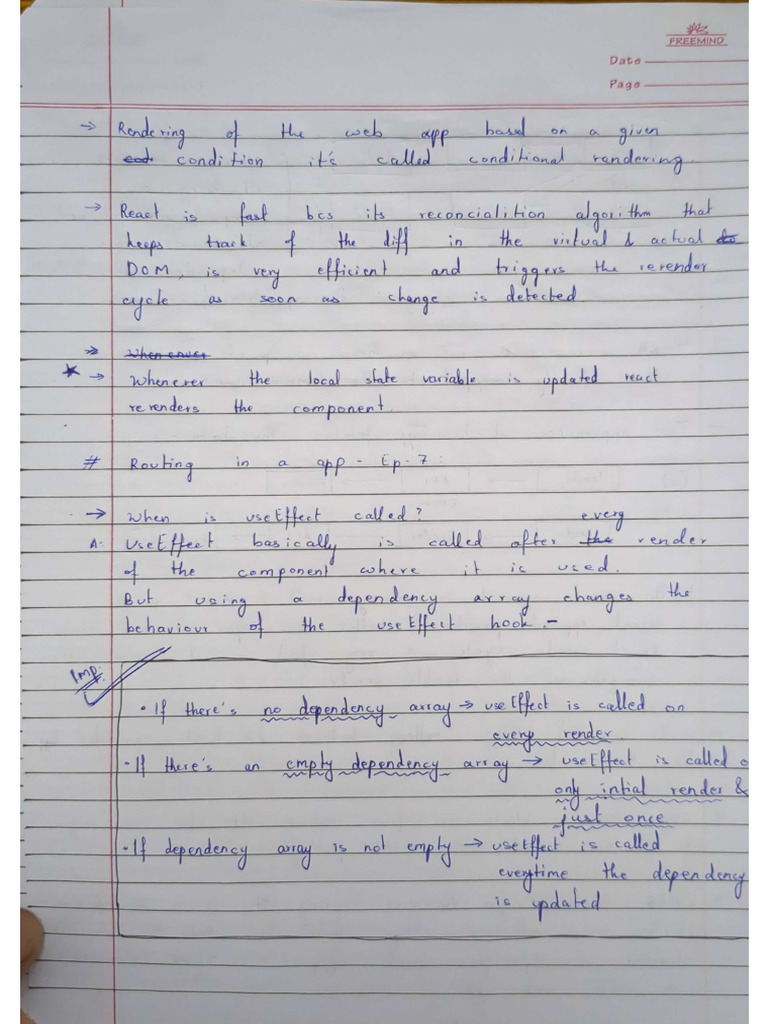 FREEMIND
Date
Page
→ Rendering of the web app based on a given
condition it's called conditional rendering.
→ React is fast bcs its reconcialition algorithm that
keeps track of the diff in the virtual & actual
DOM, is very efficient and triggers the rerender
cycle as soon as change is detected
→ When ever
★ → Whenever the local state variable is updated react
rerenders the component.
# Routing in a app - Ep-7:
→ When is useEffect called? every
A: UseEffect basically is called after the render
of the component where it is used.
But using a dependency array changes the
behaviour of the useEffect hook.-
Imp.
• If there's no dependency array → useEffect is called on
every render.
• If there's an empty dependency array → useEffect is called o
only intial render &
just once
• If dependency array is not empty → useEffect is called
everytime the dependency
is updated